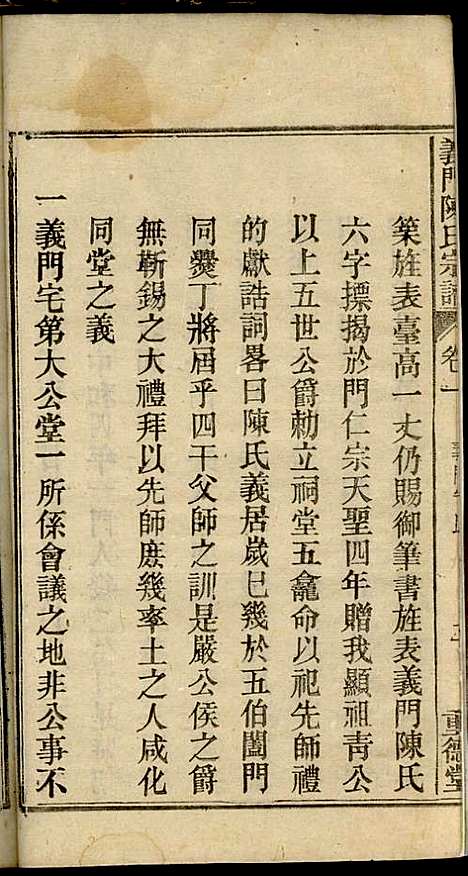 義門陳氏宗譜 卷一
重德堂
築旌表臺高一丈仍賜御筆書旌表義門陳氏
六字摽揭於門仁宗天聖四年贈我顯祖青公
以上五世公爵勅立祠堂五龕命以祀先師禮
的獻誥詞畧曰陳氏義居歲巳幾於五伯闔門
同爨丁將屆乎四干父師之訓是嚴公侯之爵
無靳錫之大禮拜以先師庶幾率土之人咸化
同堂之義
一義門宅第大公堂一所係會議之地非公事不